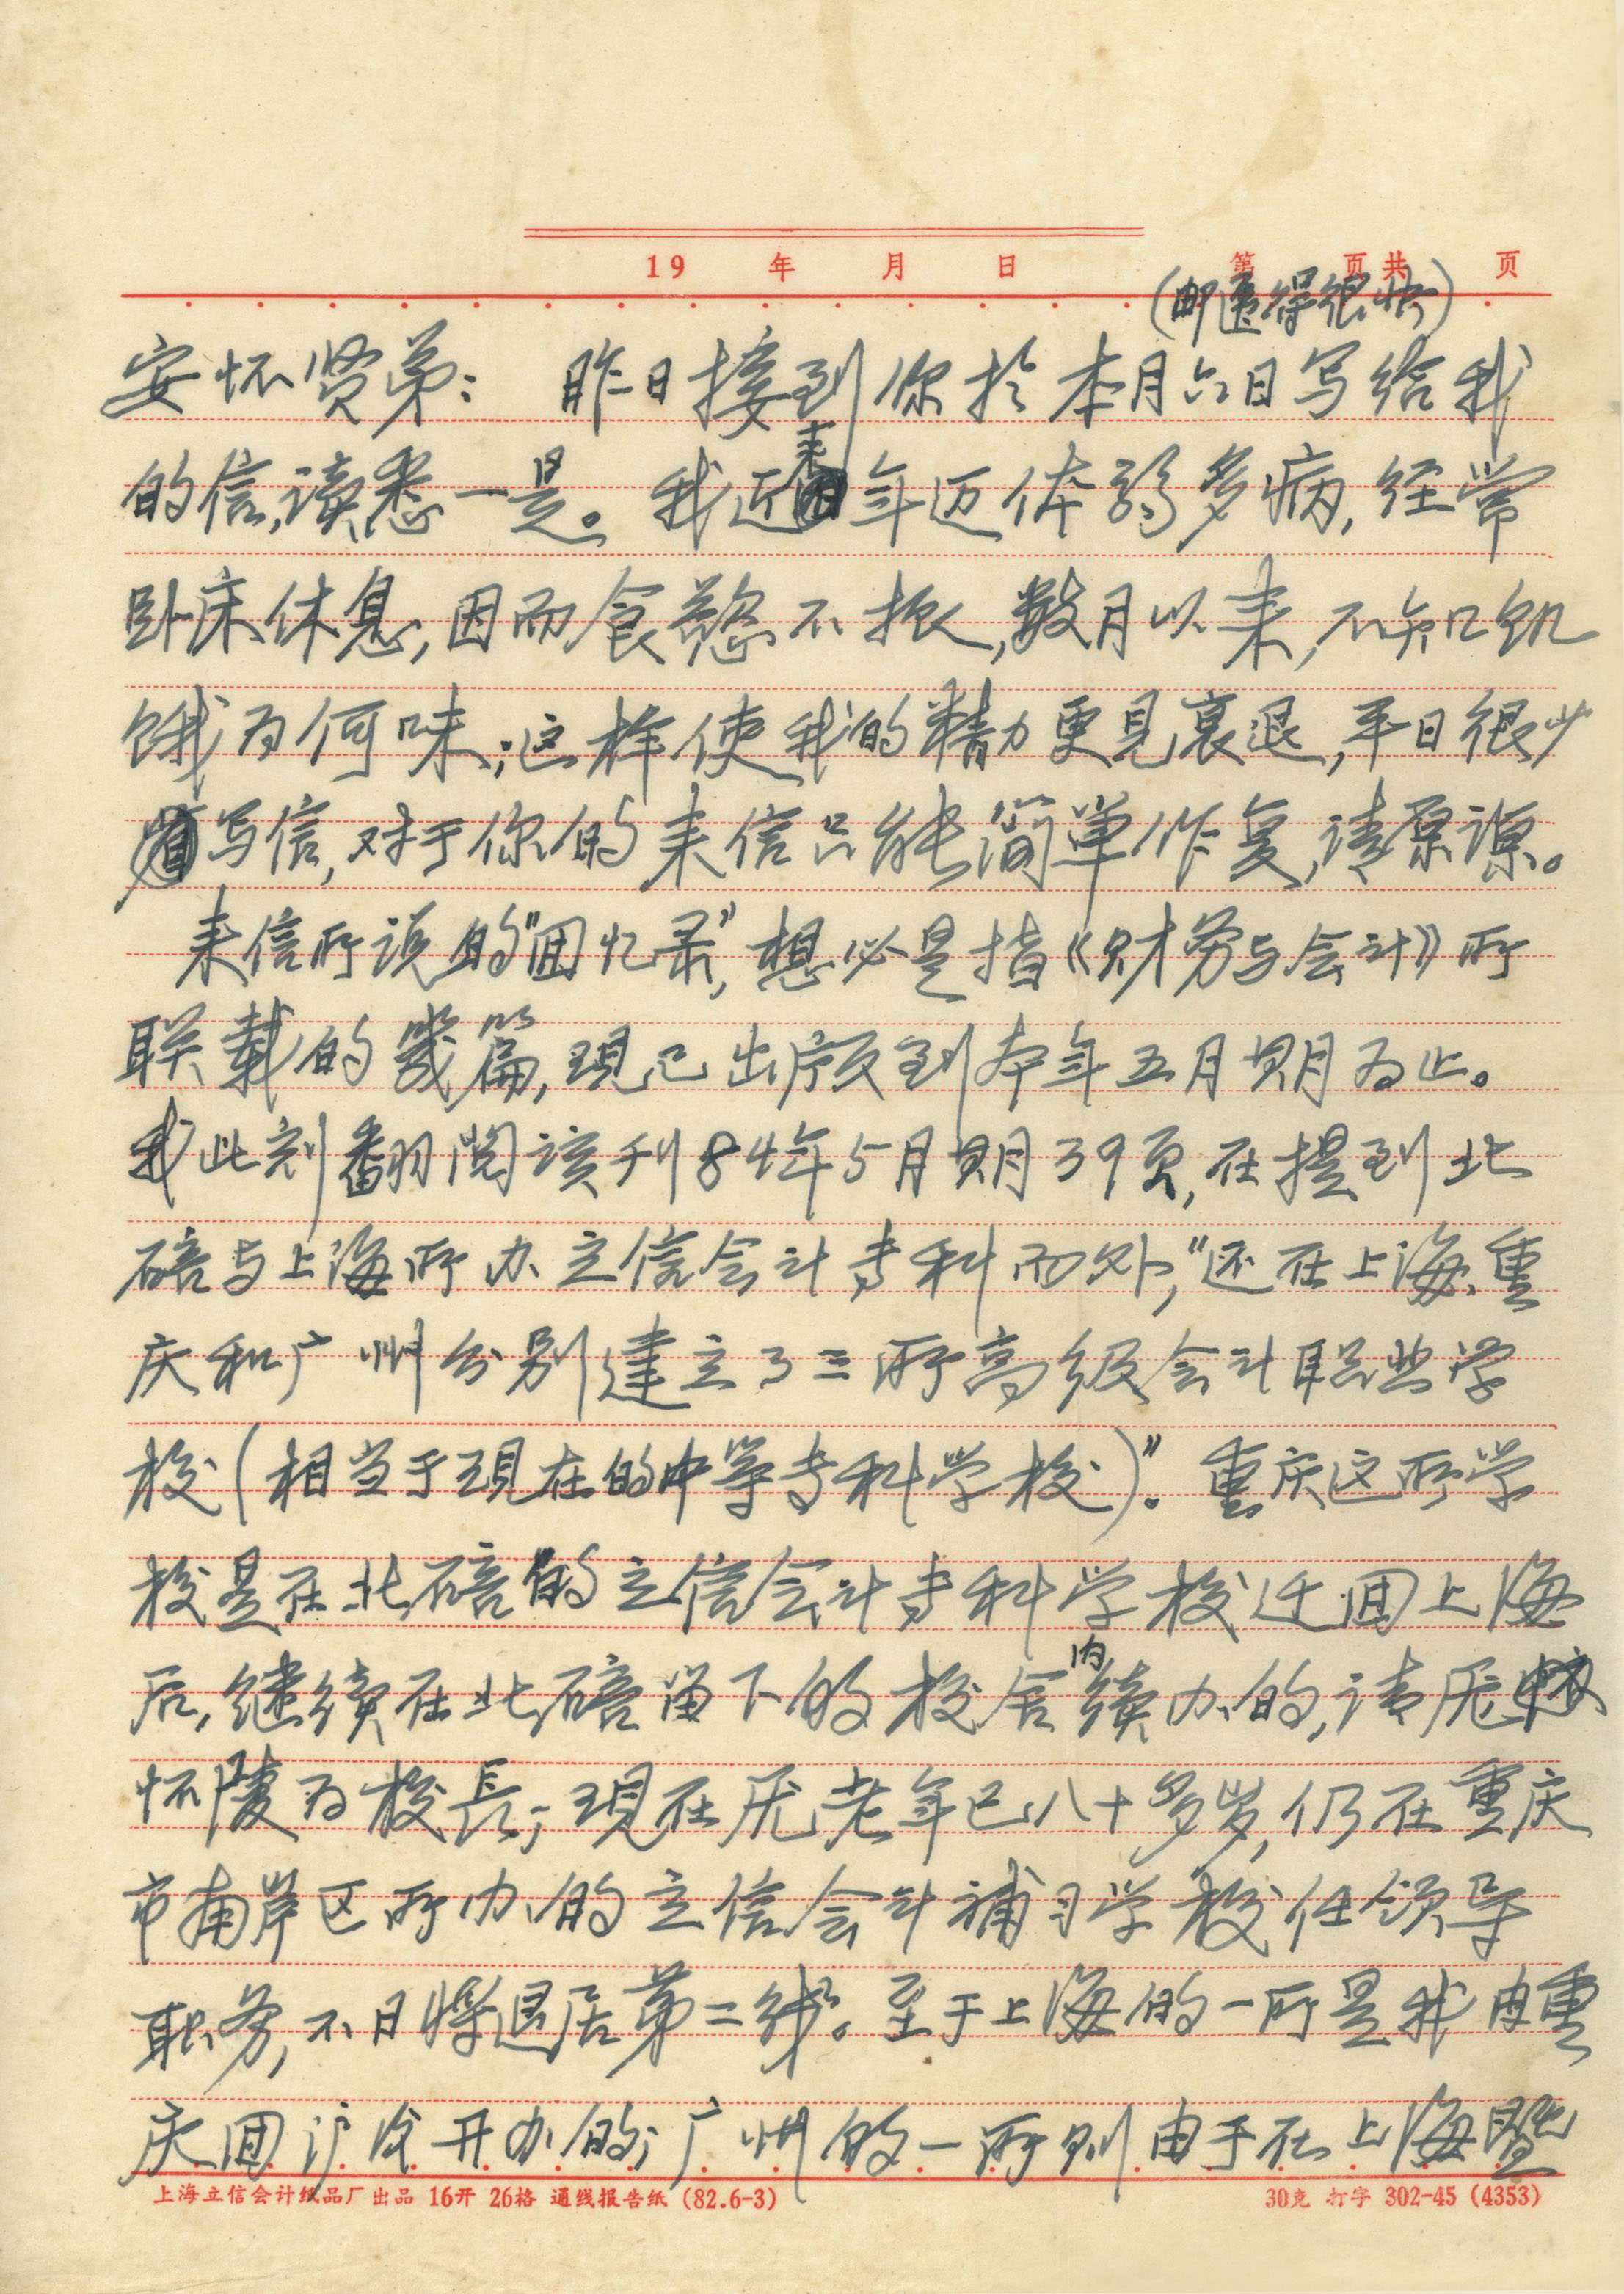 19 年 月 日 第 页共 页
(邮递得很快)
安怀贤弟： 昨日接到你于本月六日写给我
的信，读悉一是。我近来年迈体弱多病，经常
卧床休息，因而食慾不振，数月以来，不知饥
饿为何味；这样使我的精力更见衰退，平日很少
写信，对于你的来信只能简单作复，请原谅。
来信所说的“回忆录”，想必是指《财务与会计》所
联载的几篇，现已出版到本年五月期为止。
我此刻翻阅该刊84年5月期39页，在提到北
碚与上海所办立信会计专科而外，“还在上海、重
庆和广州分别建立了三所高级会计职业学
校（相当于现在的中等专科学校）”。重庆这所学
校是在北碚的立信会计专科学校迁回上海
后，继续在北碚留下的校舍内续办的，请
怀陵为校长；现在 老年已八十多岁，仍在重庆
市南岸区所办的立信会计補习学校任领导
职务，不日将退居第二线。至于上海的一所是我由重
庆回沪后开办的；广州的一所则由于在上海暨
上海立信会计纸品厂出品 16开 26格 通线报告纸 (82.6-3) 30克 打字 302-45 (4353)